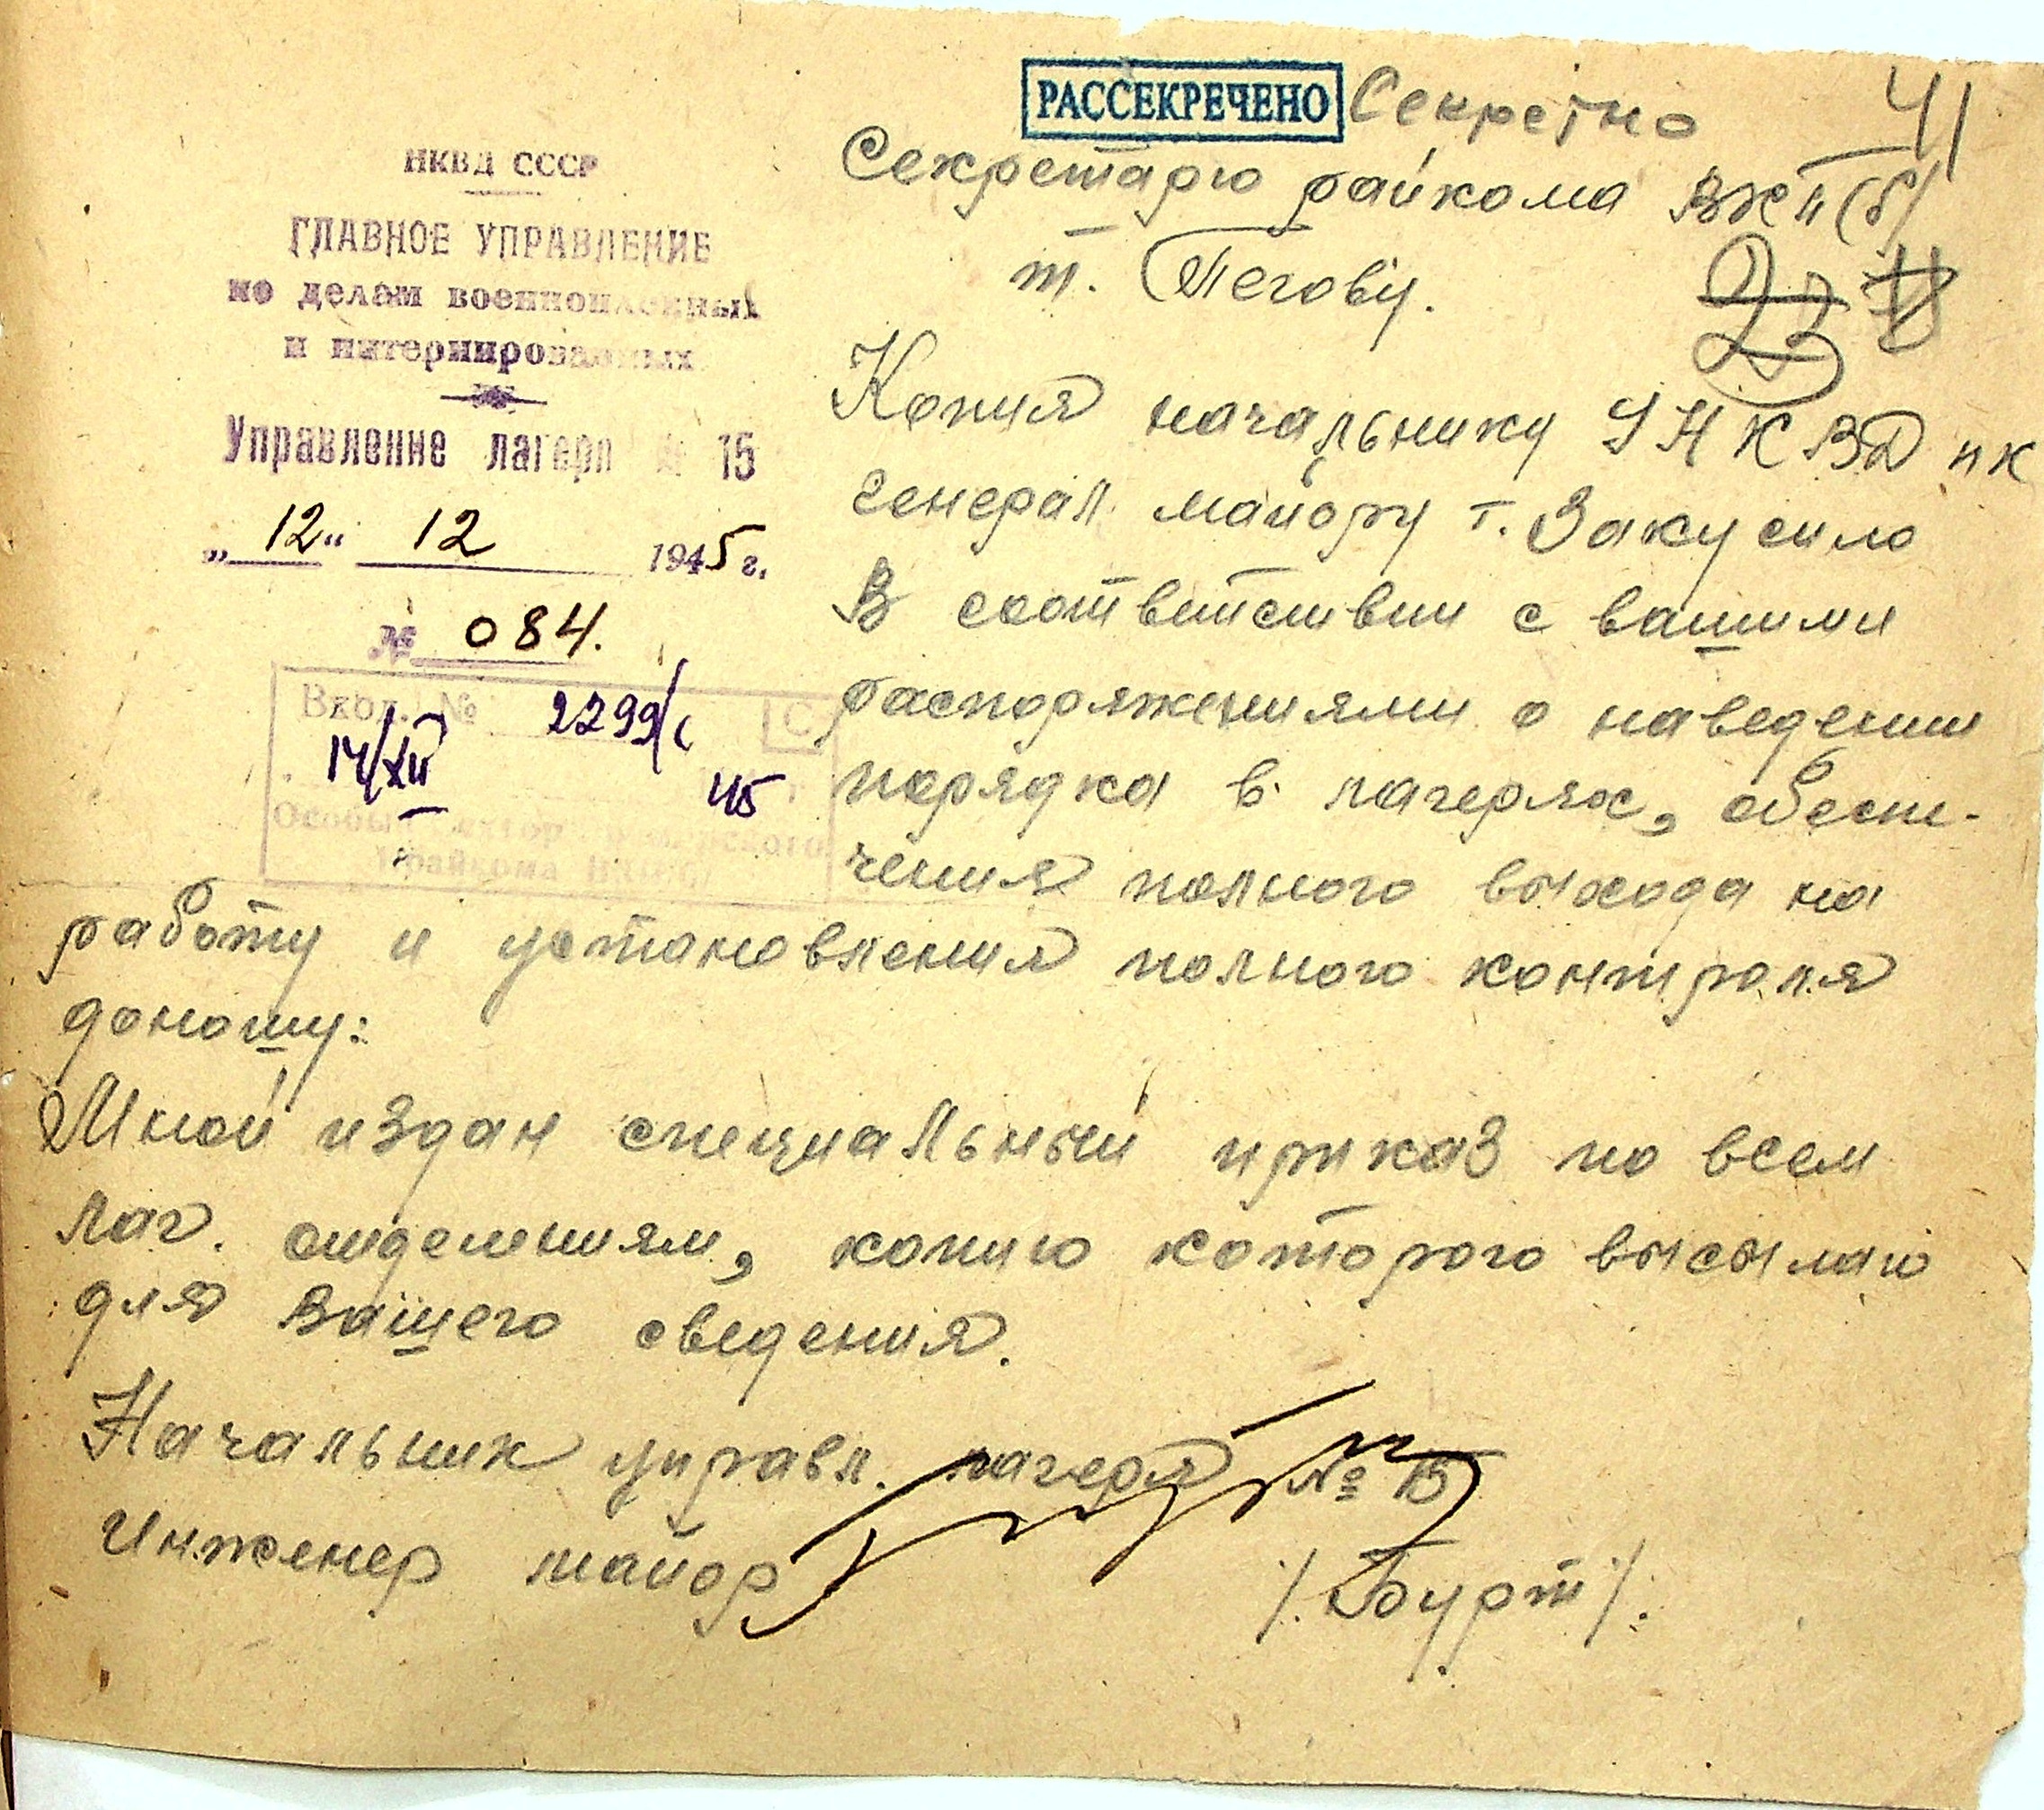 РАССЕКРЕЧЕНО Секретно
41
НКВД СССР
ГЛАВНОЕ УПРАВЛЕНИЕ
по делам военнопленных
и интернированных
Управление лагеря № 15
„12“ 12 1945 г.
№ 084.
Вход. № 2299/с С
14/XII 45
Особый сектор Приморского
Крайкома ВКП(б)
Секретарю райкома ВКП(б)
т. Пегову.
Копия начальнику УНКВД пк
генерал майору т. Закусило
В соответствии с вашими
распоряжениями о наведении
порядка в лагерях, обеспе-
чения полного выхода на
работу и установления полного контроля
доношу:
Мной издан специальный приказ по всем
лаг. отделениям, копию которого высылаю
для Вашего сведения.
Начальник управл. лагеря № 15
Инженер майор
/. Бурт /.